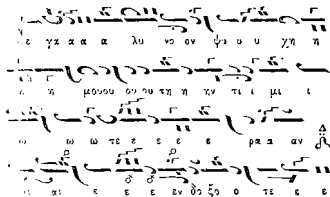 ε γα α α α λυ νο ον ψυ υ υ χη η
η μουου ου ου τη η ην τι ι μι ι
ω ω ω τε ε ε ε ε ρα α αν
αι ε ε ε εν δο ξο ο τε ε ε